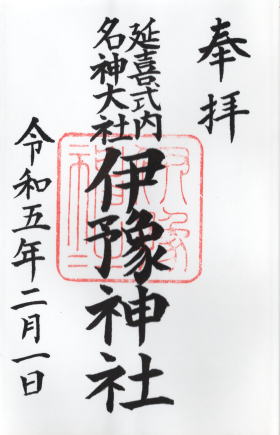 奉拝
延喜式内
名神大社
伊豫神社
令和五年二月一日